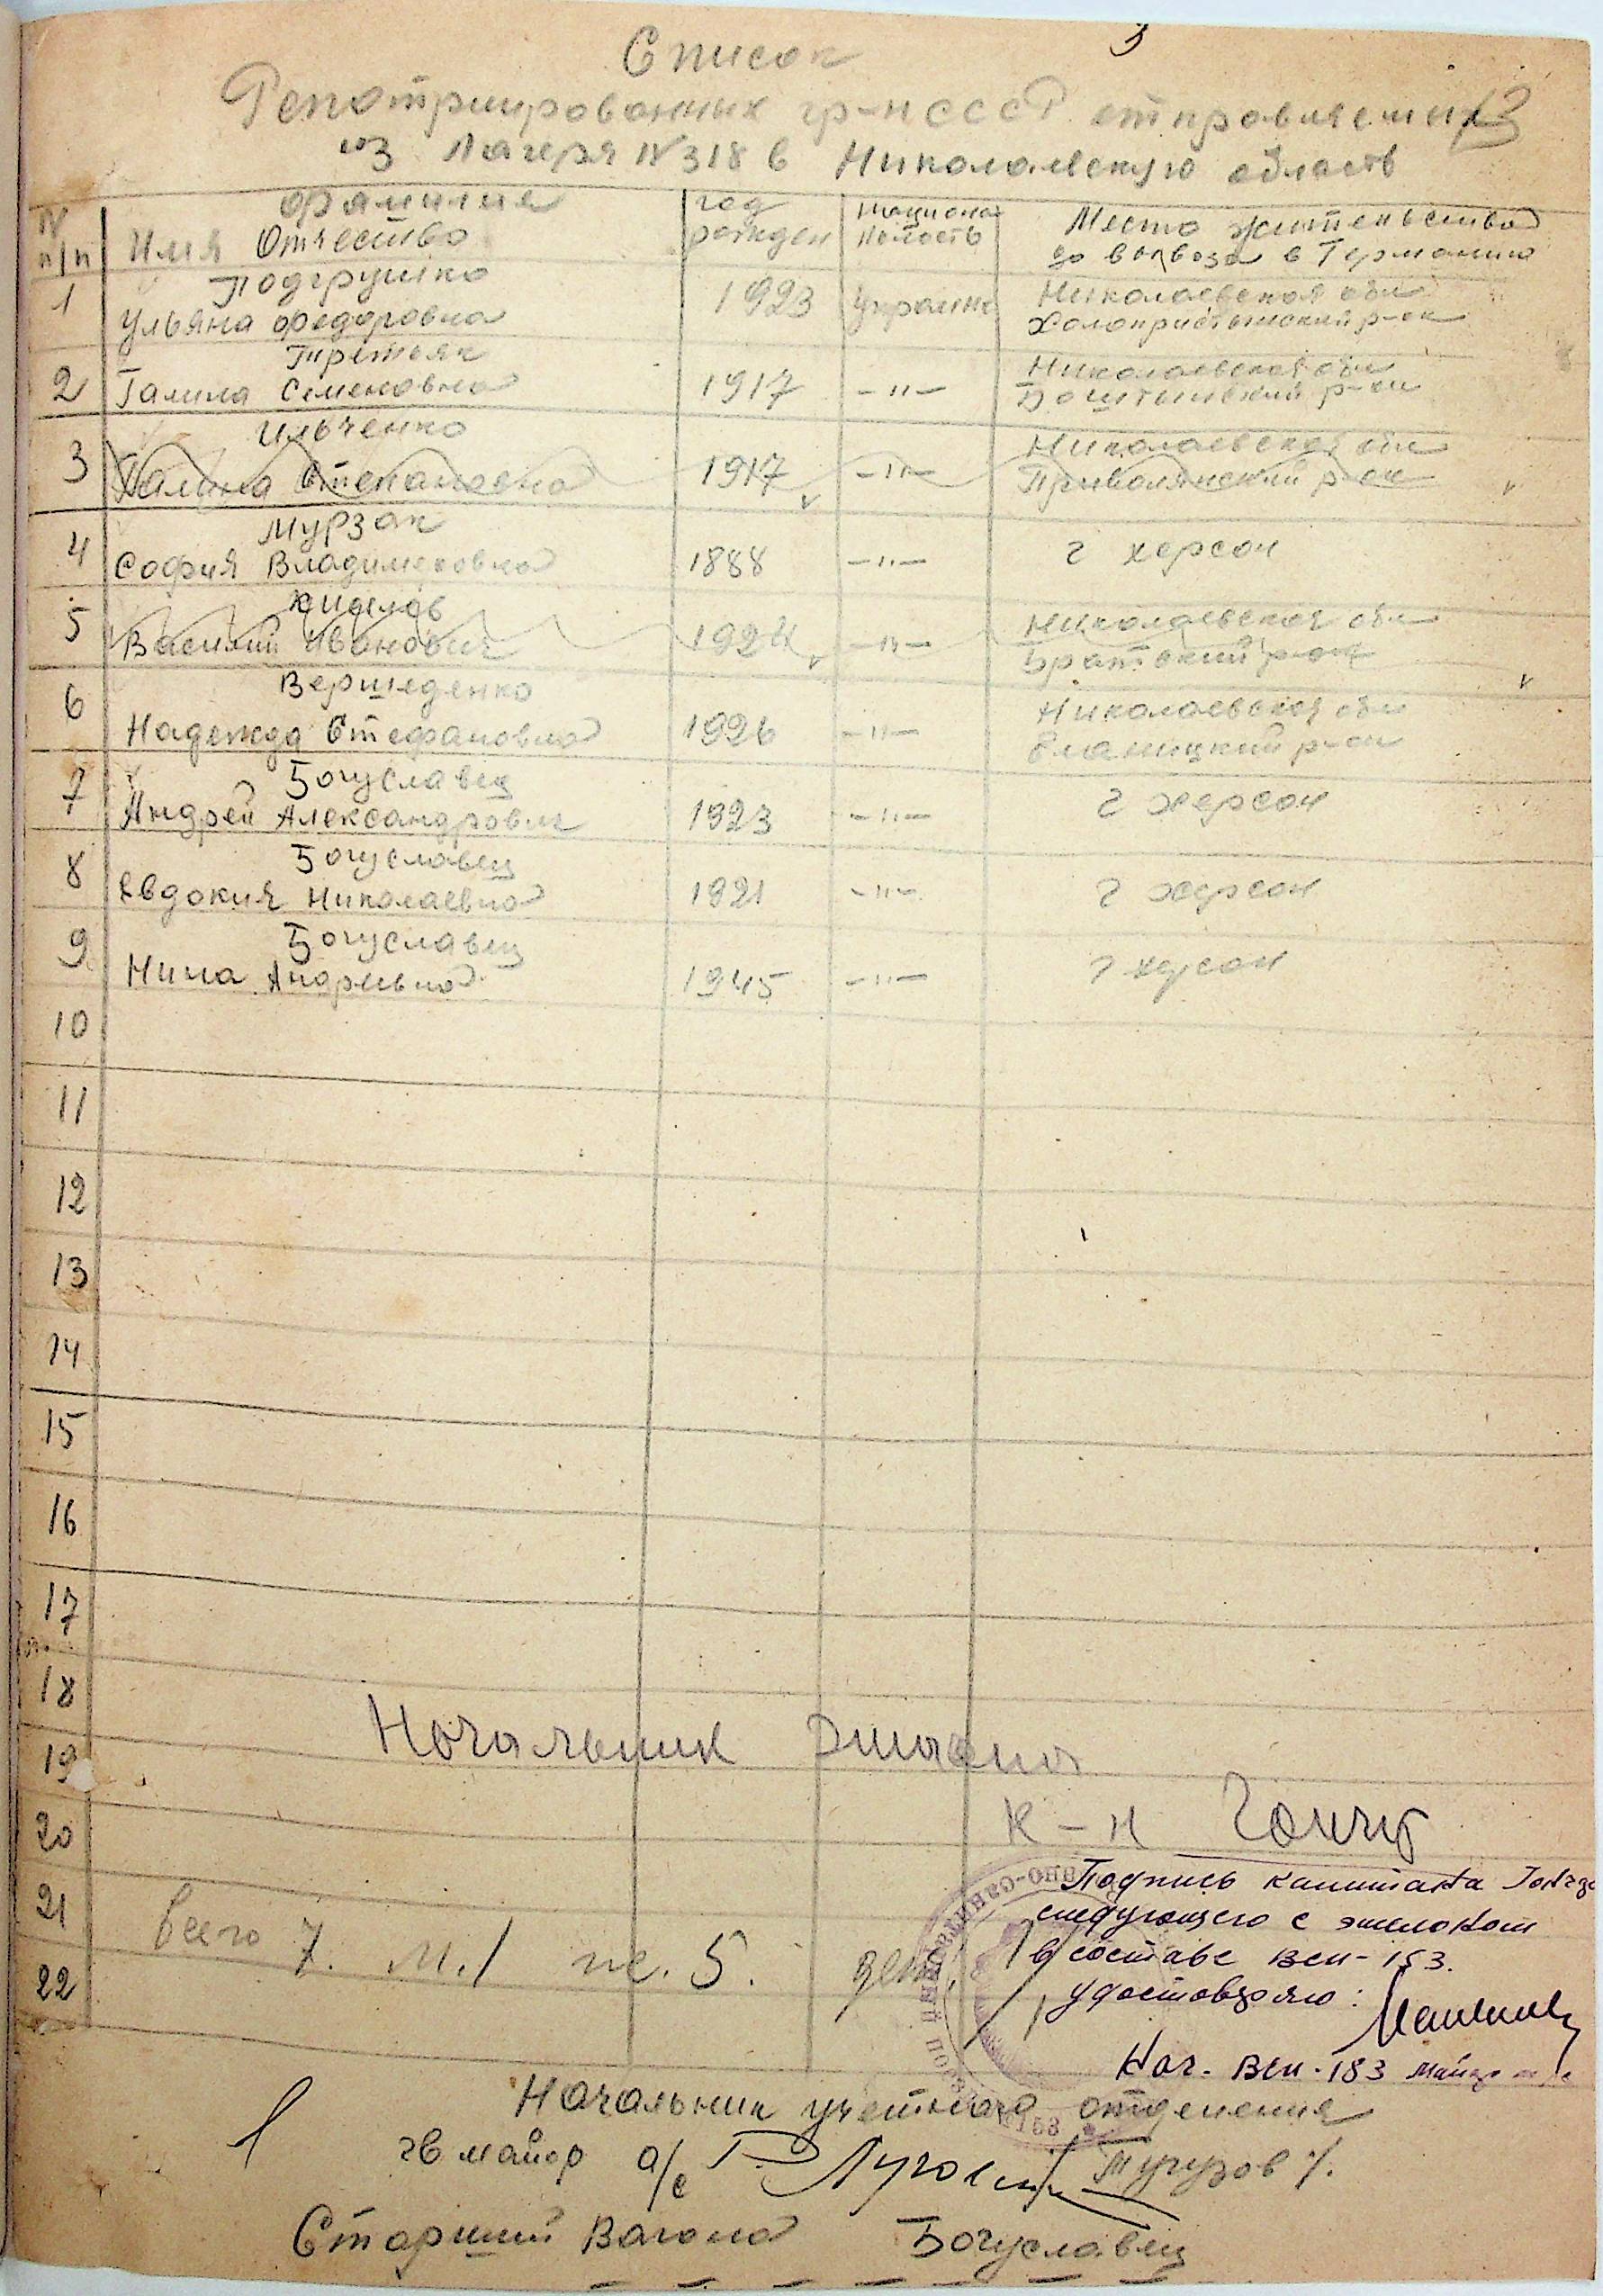 3
Список
Репотриированных гр-н СССР отправляемых
13
из Лагеря N 318 в Николаевскую область
N п/п
Фамилия
Имя Отчество
год рожден
национальность
Место жительства до вывоза в Германию
1
Подгрушко
Ульяна Федоровна
1923
Украинка
Николаевская обл
Холопристынский р-он
2
Третьяк
Галина Семеновна
1917
-"-
Николаевская обл
Боштынский р-он
3
Ильченко
Галина Степановна
1917
-"-
Николаевская обл
Привольянский р-он
4
Мурзак
София Владимировна
1888
-"-
г херсон
5
Василий Иванович
1924
-"-
Николаевская обл
Братский р-он
6
Вершеденко
Надежда Стефановна
1926
-"-
Николаевская обл
Еланицкий р-он
7
Богуславец
Андрей Александрович
1923
-"-
г херсон
8
Богуславец
Евдокия Николаевна
1921
-"-
г херсон
9
Богуславец
Нина Андреевна
1945
-"-
г херсон
10
11
12
13
14
15
16
17
18
19
20
21
22
Начальник Эшалона
К-н Гончар
Всего 7. м. 1 ж. 5. дет. 1
Подпись капитана Гончар
следующего с эшелоном
в составе ВСП-153.
удостоверяю:
Нач. ВСП-183 майор м/с
Начальник учетного отделения
гв майор а/с
Тугузов
Старший Вагона Богуславец